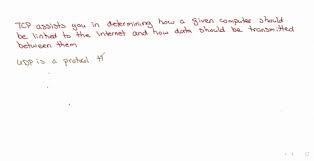 TCP assists you in determining how a given computer should
be linked to the Internet and how data should be transmitted
between them
UDP is a protocol